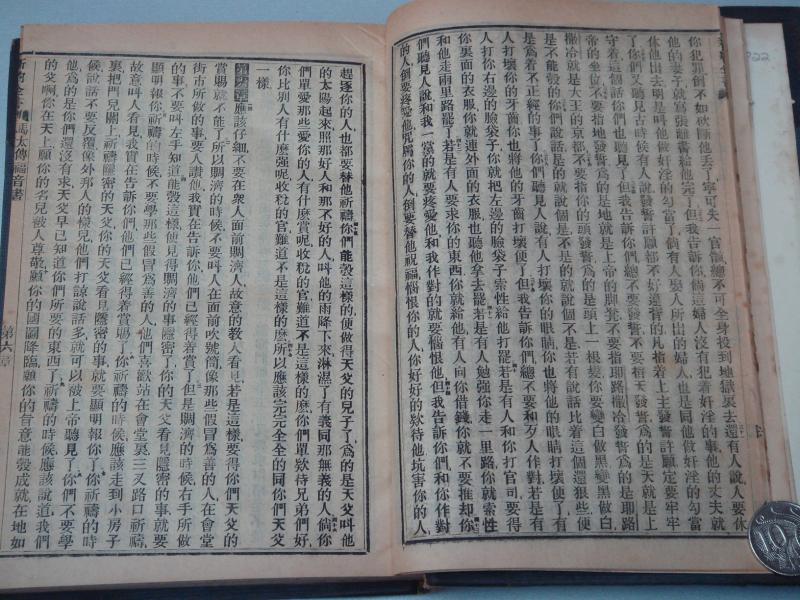 你犯罪倒不如砍斷他丟了寧可失一官骸總不可全身投到地獄裏去還有人說人要休
他的妻子就寫張離書給他完了但我告訴你們倘這婦人沒有犯着奸淫的事他的丈夫就
休他出去明是叫他做奸淫的勾當了倘有人娶人所出的婦人也是同他做奸淫的勾當
了你們又聽見古時候有人說發誓許願都不好違背的凡指着上主發誓許願定要牢牢
守着這個話你們也聽見了但我告訴你們總不要發誓不要指天發誓爲的是天就是上
帝的坐位不要指地發誓爲的是地就是上帝的脚凳不要指耶路撒冷發誓爲的是耶路
撒冷就是大王的京都不要指你的頭發誓爲的是頭上一根髮你要變白做黑變黑做白
是不能彀的你們說話是的就說個是不是的就說個不是若有說話比着這個還狠些便
是爲着不正經的事了你們聽見人說有人打壞你的眼睛你也將他的眼睛打壞便了有
人打壞你的牙齒你也將他的牙齒打壞便了但我告訴你們總不要和歹人作對若是有
人打你右邊的臉袋子你就把左邊的臉袋子索性給他打罷若是有人和你打官司要得
你裏面的衣服你就連外面的衣服也聽他拿去罷若是有人勉强你走一里路你就索性
和他走兩里路罷了若是有人要求你的東西你就給他有人向你借錢你就不要推却你
們聽見人說和我一黨的就要疼愛他和我作對的就要惱恨他但我告訴你們和你作對
的人倒要疼愛他咒罵你的人倒要替他祝福惱恨你的人你好好的欵待他坑害你的人
趕逐你的人也都要替他祈禱你們能彀這樣的便做得天父的兒子了爲的是天父叫他
的太陽起來照那好人和那不好的人叫他的雨降下來淋濕了有義同那無義的人倘你
們單愛那些愛你的人有什麽賞呢收稅的官難道不是這樣的麽你們單欵待兄弟們好
你比別人有什麽强呢收稅的官難道不是這樣的麽所以應該完完全全的同你們天父
一樣
第六章應該仔細不要在衆人面前賙濟人故意的敎人看見若是這樣要得你們天父的
賞賜就不能了所以賙濟的時候不要叫人在面前吹號筒像那些假冒爲善的人在會堂
街市所做的事要人讚他我實在告訴你他們已經得着賞了但是賙濟的時候右手所做
的事不要叫左手知道能彀這樣便見得賙濟的事隱密了你的天父看見隱密的事就要
顯明報你了祈禱的時候不要學那些假冒爲善的人他們喜歡站在會堂裏三叉路口祈禱
故意叫人看見我實在告訴你們他們已經得着賞賜了你祈禱的時候應該走到小房子
裏把門兒關上祈禱你的天父你的天父看見隱密的事就要顯明報你了你祈禱的時
候說話不要反覆像外邦人的樣兒他們打諒說話多就可以被上帝聽見了你們不要學
他爲的是你們還沒有求天父早已知道你們所要的東西了你祈禱的時候應該說道我們
的父啊你在天上願你的名兒被人尊敬願你的國圖降臨願你的旨意能彀成就在地如
新約全書 馬太傳福音書 第六章